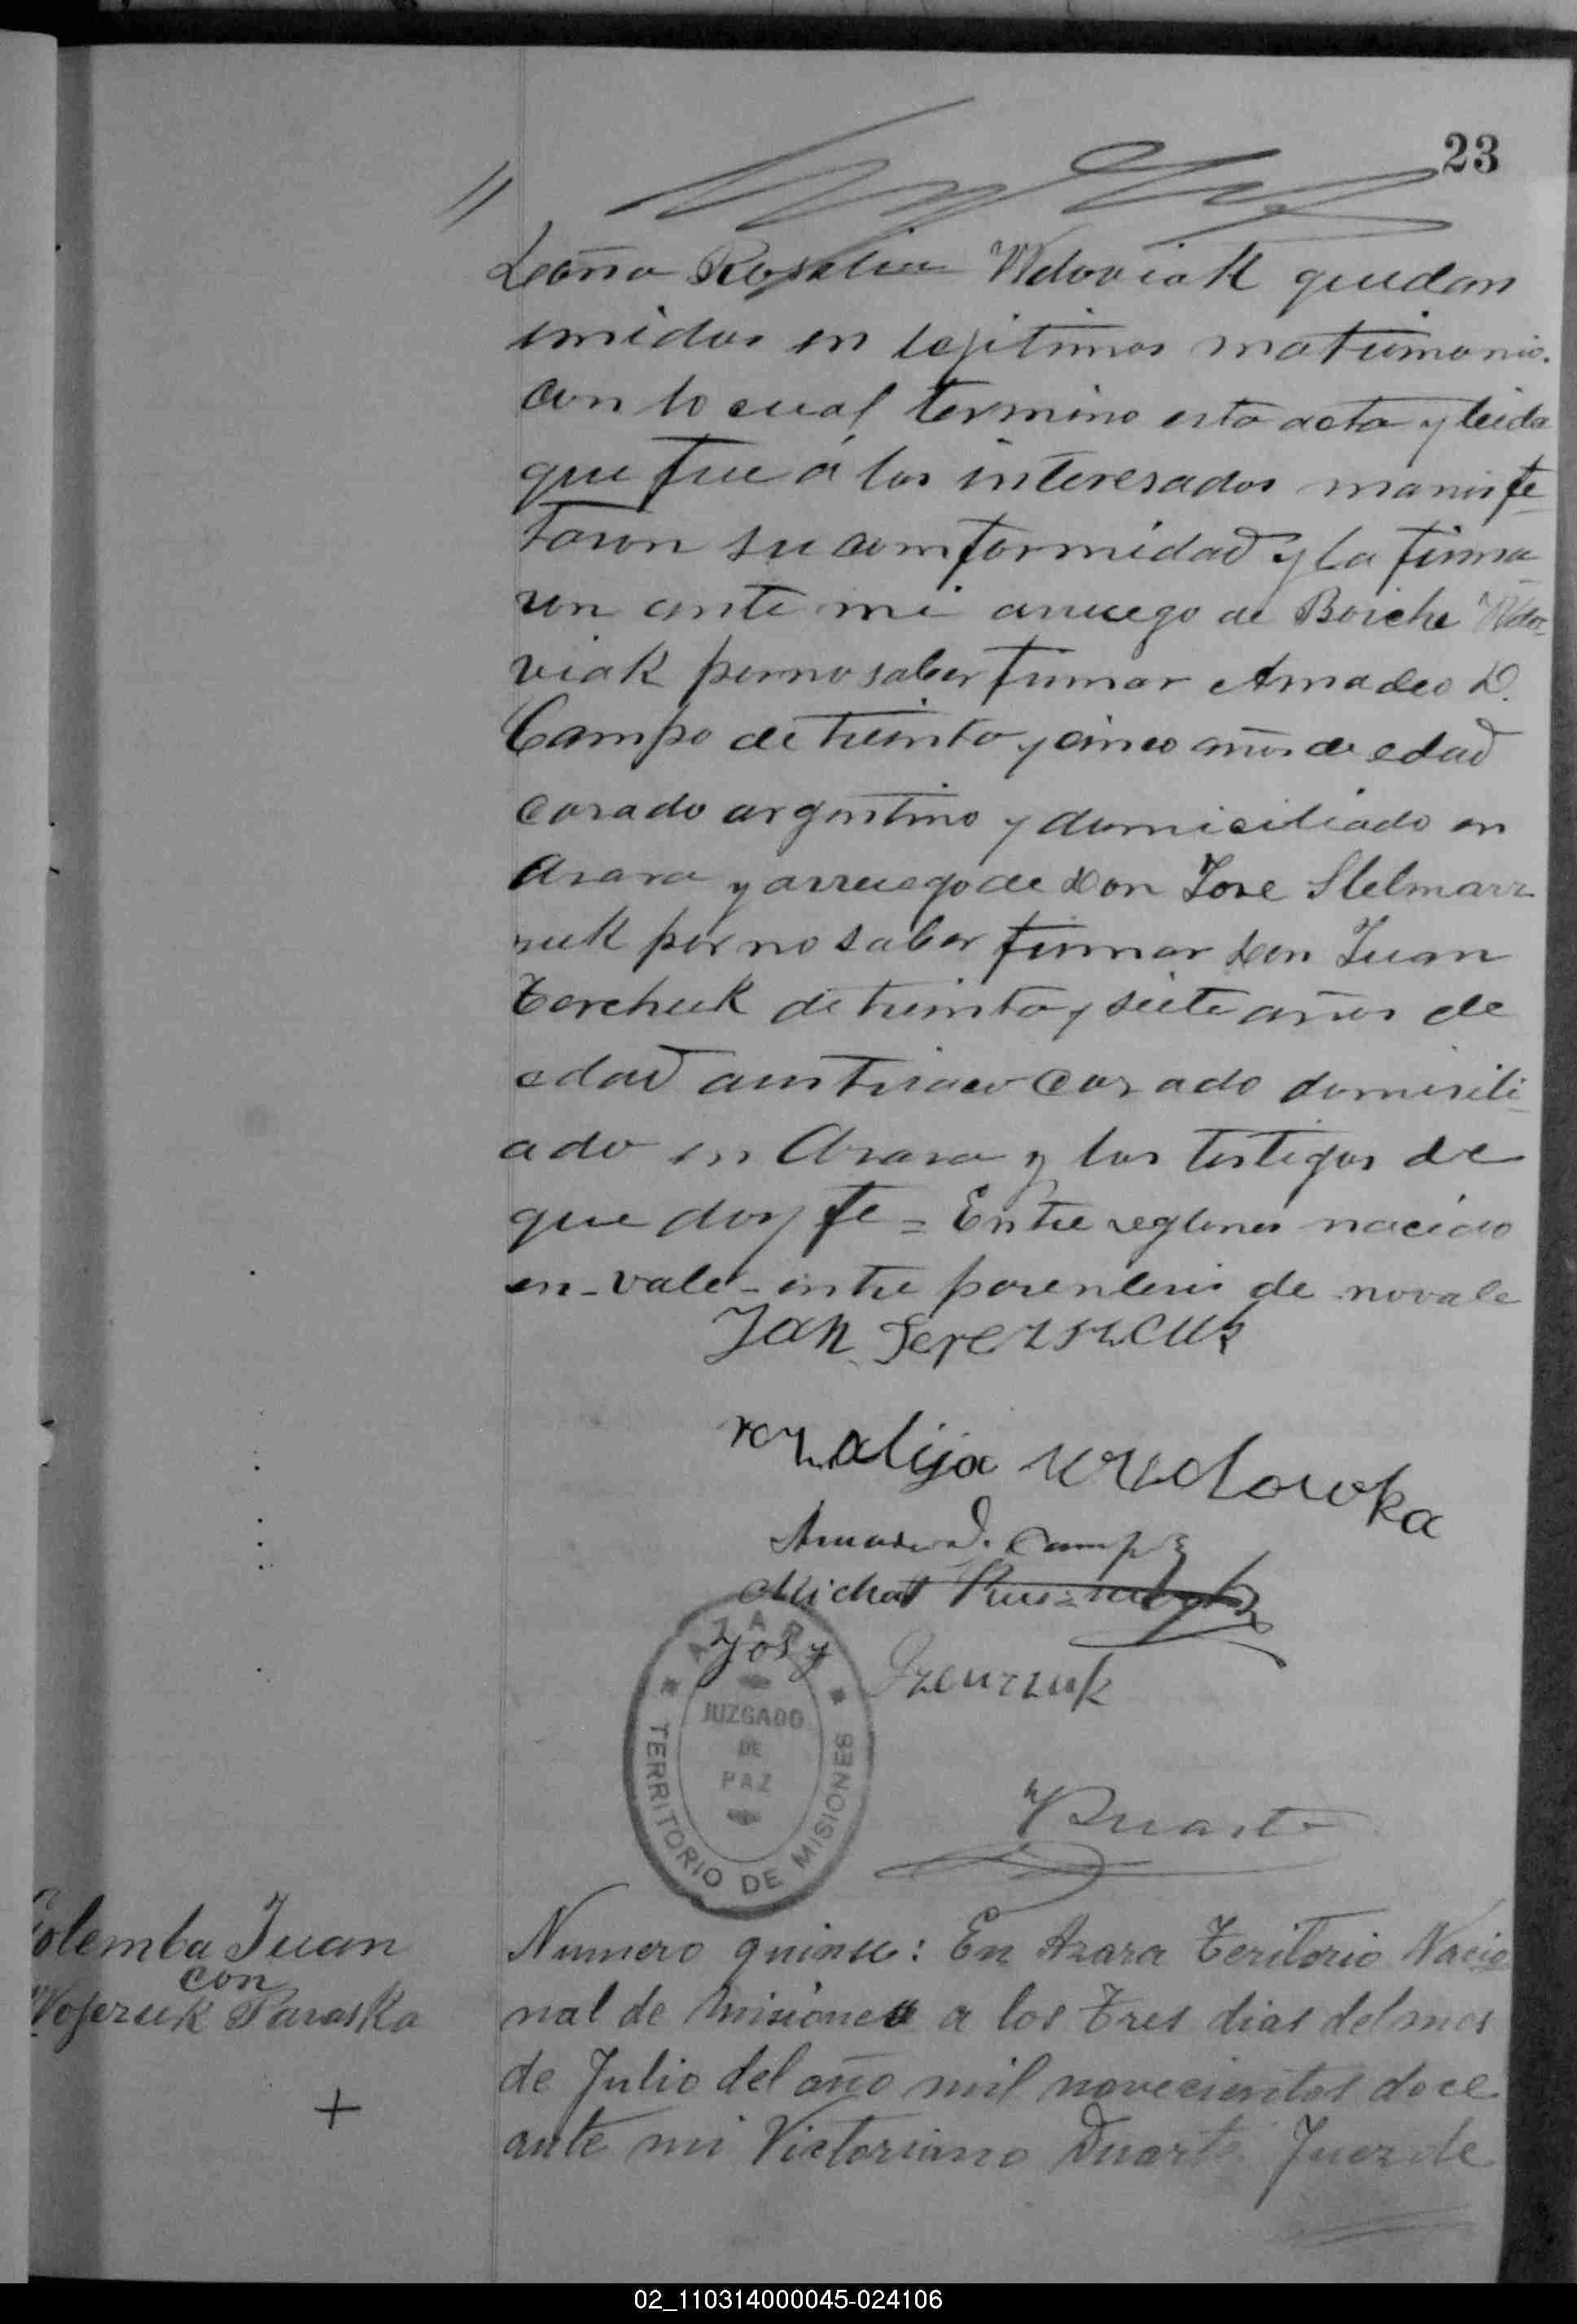 23
Doña Rosalia Wdoviak quedan
unidos en lejitimos matrimonio.
con lo cual termino esta acta y leida
que fue á los interesados manife
taron su comformidad y la firma
ron ante mi arruego de Boiche Wdo
viak por no saber firmar Amadeo D.
Campo de treinta y cinco años de edad
casado argentino y domiciliado en
Azara y arruego de Don Jose Stelmarz
nuk por no saber firmar Don Juan
Terchuk de treinta y siete años de
edad austriaco casado domicili
ado en Azara y los testigos de
que doy fe = Entre reglones nacido
en - vale - entre parentesis de no vale
Jan
rozalija
Amadeo D. Campo
Michał
Josy Szewczuk
AZARA
JUZGADO
DE
PAZ
TERRITORIO DE MISIONES
VDuarte
Golemba Juan
con
Wojczuk Paraska
Numero quince: En Azara Teritorio Nacio
nal de Misiones a los Tres dias del mes
de Julio del año mil novecientos doce
ante mi Victoriano Duarte Juez de
02_110314000045-024106